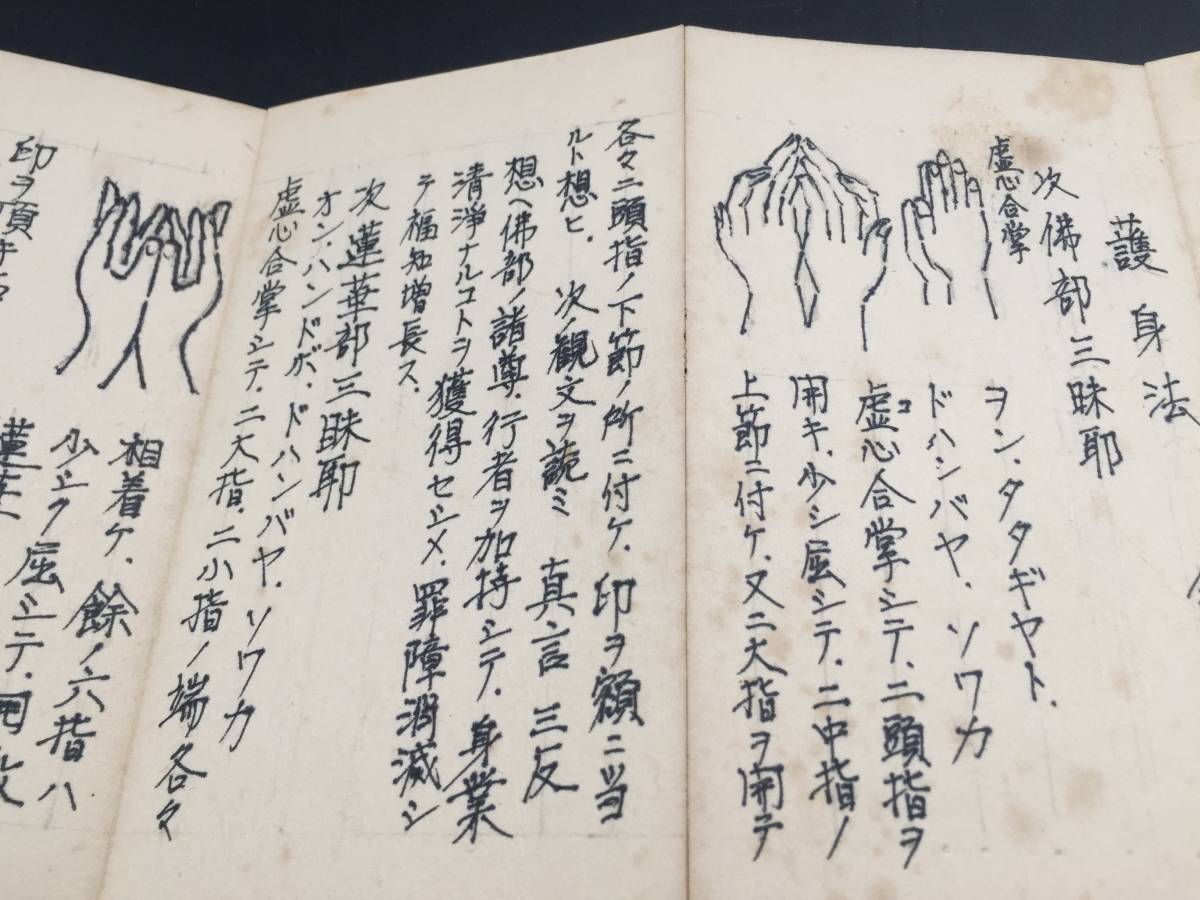 護身法
次佛部三昧耶
虚心合掌
ヲン、タタギヤト、
ドハンバヤ、ソワカ
虚心合掌シテ、二頭指ヲ
開キ、少シ屈シテ、二中指ノ
上節ニ付ケ、又二大指ヲ開テ
各々ニ頭指ノ下節ノ所ニ付ケ、印ヲ額ニ当ツ
ルト想ヒ、次ノ観文ヲ読ミ 真言 三反
想ヘ佛部ノ諸尊、行者ヲ加持シテ、身業
清淨ナルコトヲ獲得セシメ、罪障消滅シ
テ福知増長ス、
次蓮華部三昧耶
オン、ハンドボ、ドハンバヤ、ソワカ
虚心合掌シテ、二大指、二小指ノ端各々
相着ケ、餘ノ六指ハ
少シク屈シテ、
印ヲ頂